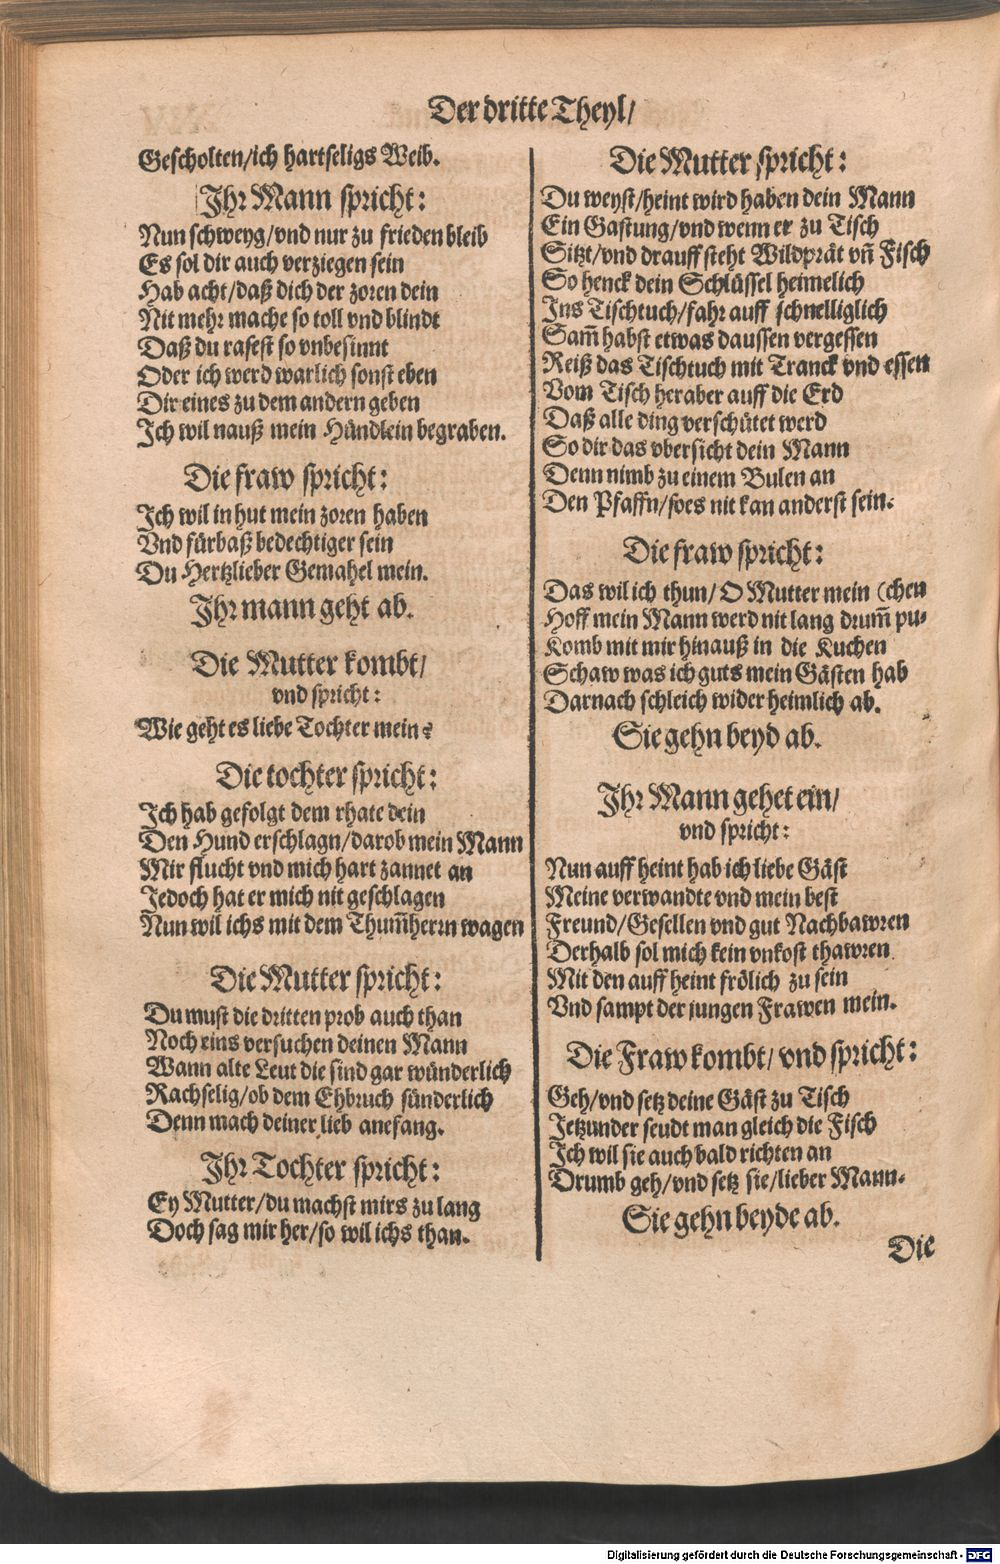 Der dritte Theyl/
Gescholten/ich hartseligs Weib.
Ihr Mann spricht:
Nun schweyg/vnd nur zu frieden bleib
Es sol dir auch verziegen sein
Hab acht/daß dich der zoren dein
Nit mehr mache so toll vnd blindt
Daß du rasest so vnbesinnt
Oder ich werd warlich sonst eben
Dir eines zu dem andern geben
Ich wil nauß mein Hündlein begraben.
Die fraw spricht:
Ich wil in hut mein zoren haben
Vnd fürbaß bedechtiger sein
Du Hertzlieber Gemahel mein.
Ihr mann geht ab.
Die Mutter kombt/
vnd spricht:
Wie geht es liebe Tochter mein?
Die tochter spricht:
Ich hab gefolgt dem rhate dein
Den Hund erschlagn/darob mein Mann
Mir flucht vnd mich hart zannet an
Jedoch hat er mich nit geschlagen
Nun wil ichs mit dem Thum̃herrn wagen
Die Mutter spricht:
Du must die dritten prob auch than
Noch eins versuchen deinen Mann
Wann alte Leut die sind gar wünderlich
Rachselig/ob dem Ehbruch sünderlich
Denn mach deiner lieb anefang.
Ihr Tochter spricht:
Ey Mutter/du machst mirs zu lang
Doch sag mir her/so wil ichs than.
Die Mutter spricht:
Du weyst/heint wird haben dein Mann
Ein Gastung/vnd wenn er zu Tisch
Sitzt/vnd drauff steht Wildprät vñ Fisch
So henck dein Schlüssel heimelich
Ins Tischtuch/fahr auff schnelliglich
Sam̃ habst etwas daussen vergessen
Reiß das Tischtuch mit Tranck vnd essen
Vom Tisch heraber auff die Erd
Daß alle ding verschütet werd
So dir das vbersicht dein Mann
Denn nimb zu einem Bulen an
Den Pfaffn/so es nit kan anderst sein.
Die fraw spricht:
Das wil ich thun/O Mutter mein (chen
Hoff mein Mann werd nit lang drum̃ pu-
Komb mit mir hinauß in die Kuchen
Schaw was ich guts mein Gästen hab
Darnach schleich wider heimlich ab.
Sie gehn beyd ab.
Ihr Mann gehet ein/
vnd spricht:
Nun auff heint hab ich liebe Gäst
Meine verwandte vnd mein best
Freund/Gesellen vnd gut Nachbawren
Derhalb sol mich kein vnkost thawren
Mit den auff heint frölich zu sein
Vnd sampt der jungen Frawen mein.
Die Fraw kombt/vnd spricht:
Geh/vnd setz deine Gäst zu Tisch
Jetzunder seudt man gleich die Fisch
Ich wil sie auch bald richten an
Drumb geh/vnd setz sie/lieber Mann.
Sie gehn beyde ab.
Die
Digitalisierung gefördert durch die Deutsche Forschungsgemeinschaft - DFG